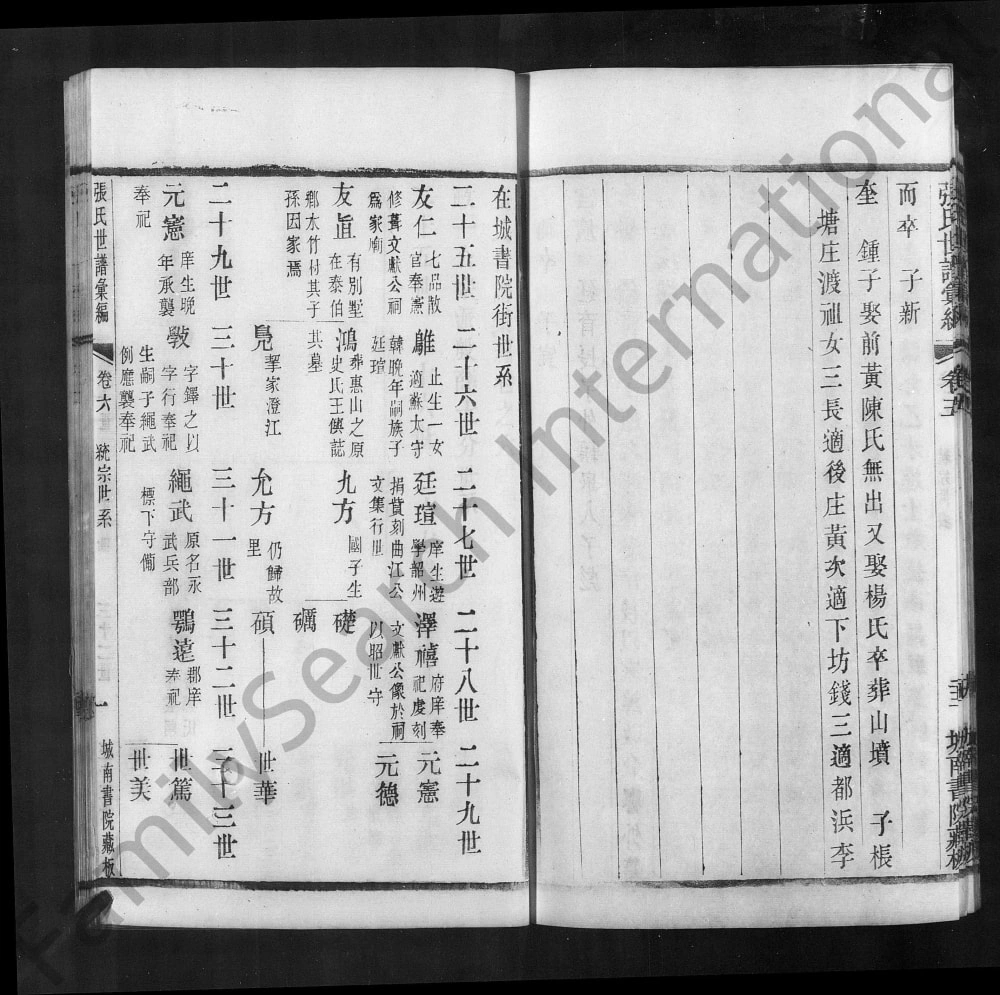 而卒　子新
奎　鍾子娶前黃陳氏無出又娶楊氏卒葬山墳　子棖
塘庄渡祖女三長適後庄黃次適下坊錢三適都浜李
張氏世譜彙編
城南書院藏板
在城書院街世系
二十五世 二十六世 二十七世 二十八世 二十九世
友仁 七品散官奉憲修葺文獻公祠為家廟
鵰 止生一女適蘇太守韓晚年嗣族子廷瑄
廷瑄 庠生遊學韶州捐貲刻曲江公文集行世
澤禧 府庠奉祀虔刻文獻公像於祠以昭世守
元憲
元德
友直 有別墅在泰伯鄉水竹村其子孫因家焉
鴻 葬惠山之原史氏王偀誌其墓
九方 國子生
礎
礪
鳧 挈家澄江
允方 仍歸故里
碩
世華
二十九世 三十世 三十一世 三十二世 三十三世
元憲 庠生晚年承襲奉祀
斆 字鐸之以字行奉祀生嗣子繩武例應襲奉祀
繩武 原名永武兵部標下守備
鶚遠 郡庠奉祀
世篤
世美
張氏世譜彙編
卷六 統宗世系
一
城南書院藏板
FamilySearch International